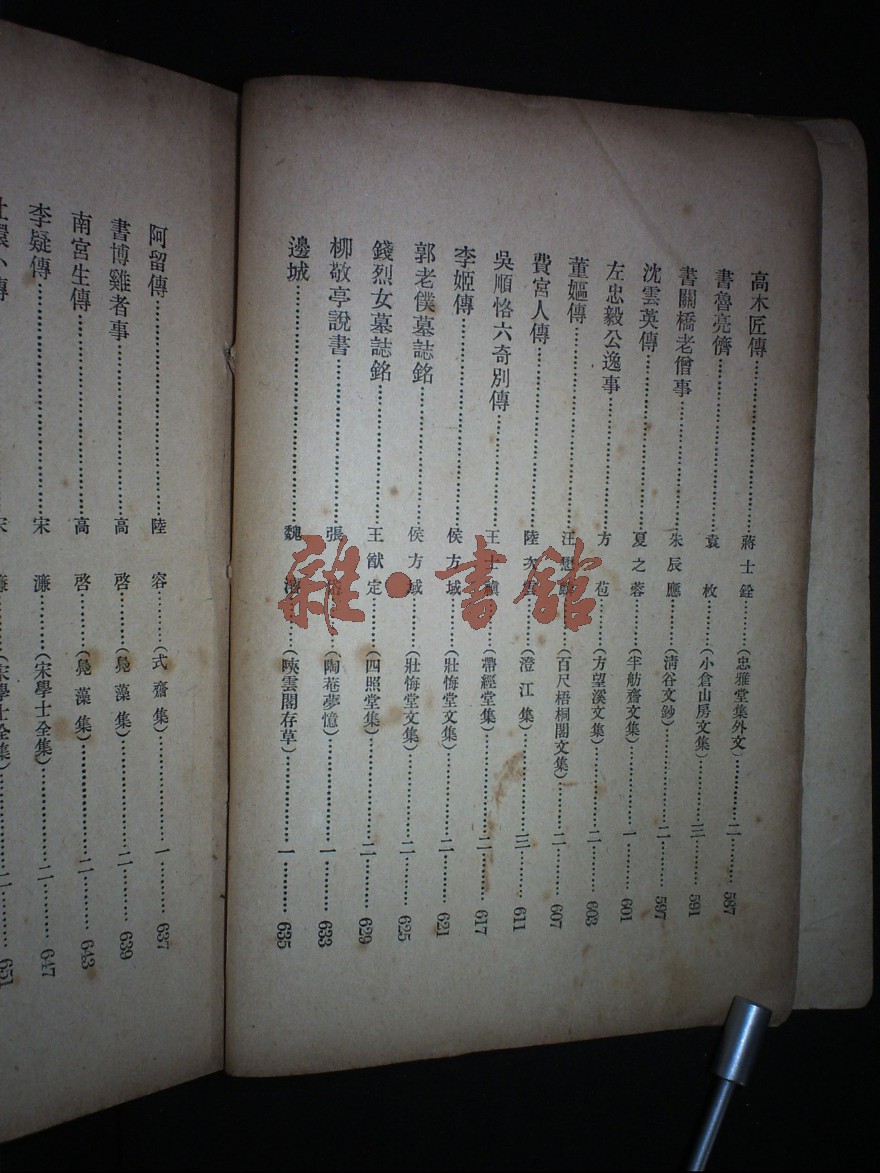 高木匠傳……蔣士銓……(忠雅堂集外文)……二……587
書魯亮儕……袁枚……(小倉山房文集)……三……591
書關橋老僧事……朱辰應……(清谷文鈔)……二……597
沈雲英傳……夏之蓉……(半舫齋文集)……一……601
左忠毅公逸事……方苞……(方望溪文集)……二……603
董嫗傳……汪懋麟……(百尺梧桐閣文集)……二……607
費宮人傳……陸次雲……(澄江集)……三……611
吳順恪六奇別傳……王士禛……(帶經堂集)……二……617
李姬傳……侯方域……(壯悔堂文集)……二……621
郭老僕墓誌銘……侯方域……(壯悔堂文集)……二……625
錢烈女墓誌銘……王猷定……(四照堂集)……二……629
柳敬亭說書……張……(陶菴夢憶)……一……633
邊城……魏……(映雲閣存草)……一……635
阿留傳……陸容……(式齋集)……一……637
書博雞者事……高啓……(鳧藻集)……二……639
南宮生傳……高啓……(鳧藻集)……二……643
李疑傳……宋濂……(宋學士全集)……二……647
杜環小傳……宋濂……(宋學士全集)……二……651
雜·書館